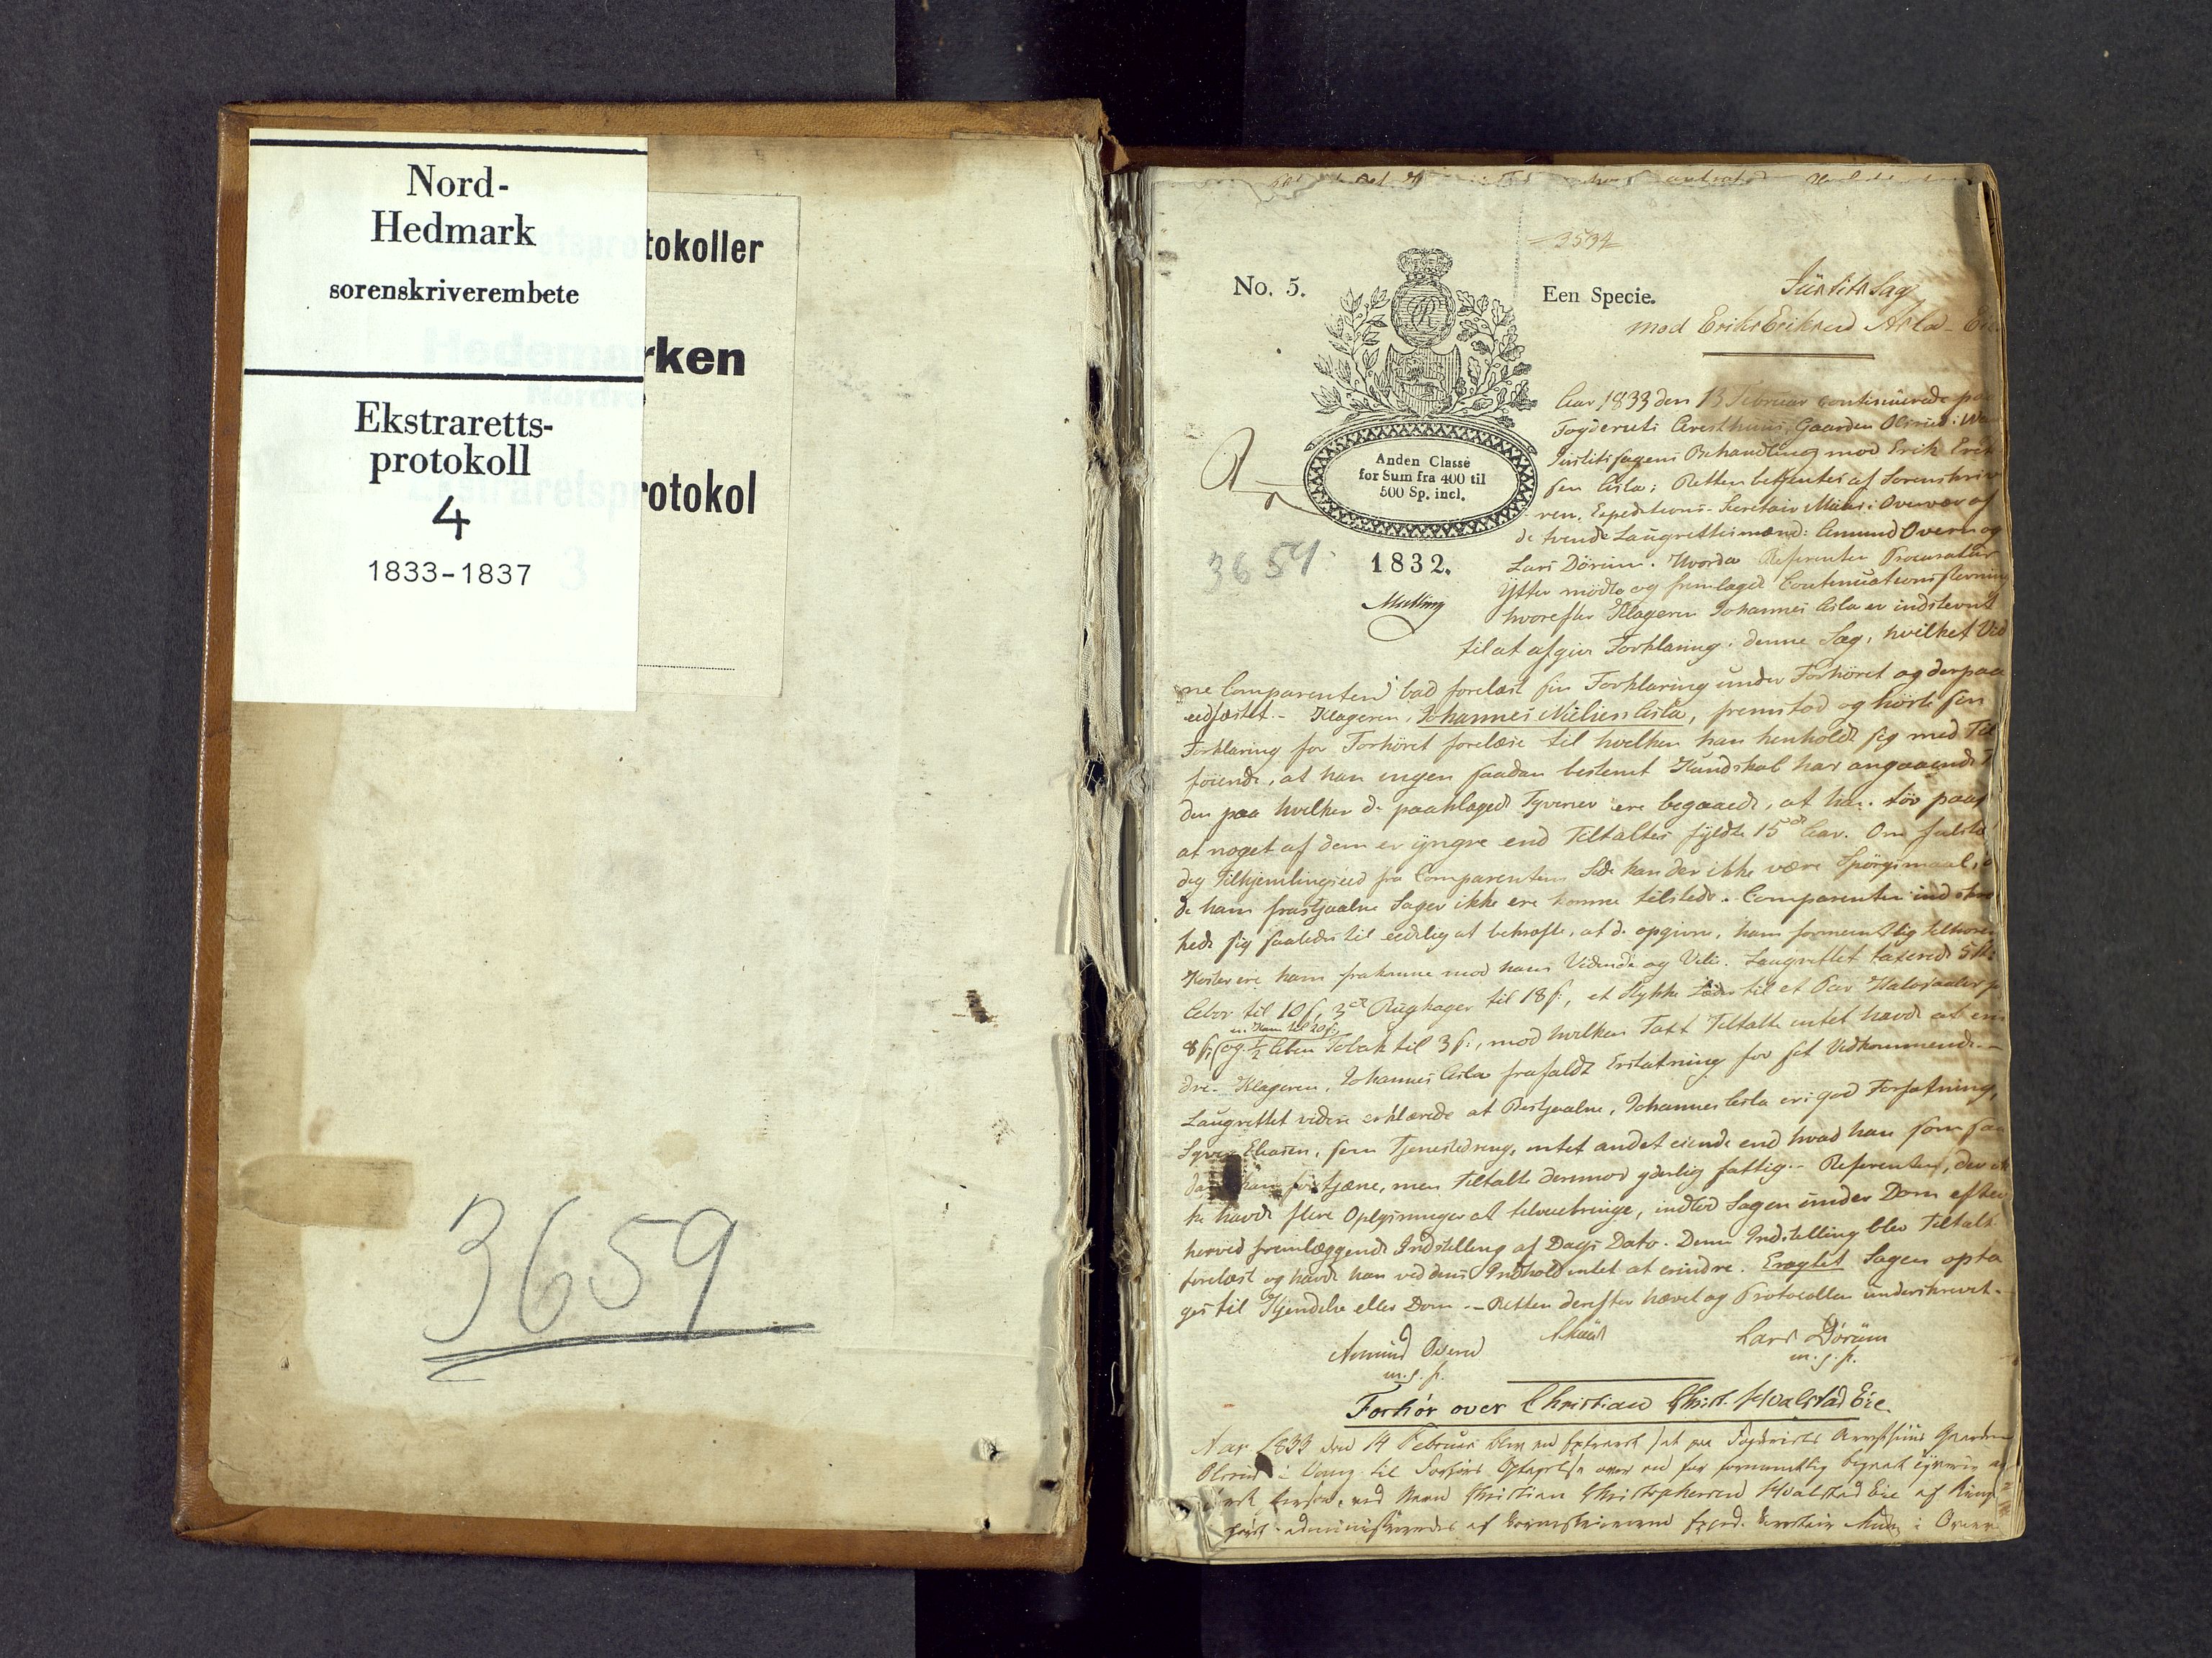 Nord-
Hedmark
sorenskriverembete
Ekstraretts-
protokoll
4
1833-1837
tokoller
rken
rotokol
3
3659
3534
No. 5.
Een Specie.
Justits Sag
mod Erik Eriksen
Anden Classe
for Sum fra 400 til
500 Sp. incl.
1832.
3659.
Aar 1833 den 13 Februar continuerede paa
Fogderiets Aresthuus, Gaarden
Justitssagens Behandling mod Erik Erik
sen Asla; Retten betjentes af Sorenskriv
ren, Expeditions-Secretair i Overvær af
de tvende Laugrettesmænd: Amund Overn og
Lars Dörum. Hvorda Referenten Procurator
Ytter mödte og fremlagde Continuationsstevning
hvorefter Klageren Johannes Asla er indstevnt
til at afgive Forklaring i denne Sag, hvilket Vid
ne Comparenten bad forelæst sin Forklaring under Forhöret og derpaa
eedfæstet. - Klageren, Johannes Nielsen Asla, fremstod og hörte sin
Forklaring for Forhöret forelæse til hvilken han henholdt sig med Til
föiende, at han ingen saadan bestemt Kundskab har angaaende
den paa hvilken de paaklagede Tyverier ere begaaede, at han tör paas
at noget af dem er yngre end Tiltaltes fyldte 15de Aar. Om
Tilhjemlingseed fra Comparentens Side kan der ikke være Spörgsmaal,
de ham frastjaalne Sager ikke ere komne tilstede. Comparenten indskræn
kede sig saaledes til eedelig at bekræfte, at de opgivne, ham formeentlig tilhören
Koster ere ham frakomne mod hans Vidende og Villie. Laugrettet taxerede
til 10 s, 3de Rugkager til 18 s, et Stykke Læder til et Par Halvsaaler
en Kam til 20 s,
8 s, og ½ Alen Tobak til 3 s, mod hvilken Taxt Tiltalte intet havde at erin
dre. Klageren, Johannes Asla frafaldt Erstatning for sit Vidkommende. -
Laugrettet videre erklærede at Bestjaalne, Johannes Asla er i god Forfatning,
Syver Eliasen, som Tjenestedreng, intet andet eiende end hvad han som saa
dan kan fortjene, men Tiltalte derimod yderlig fattig. - Referenten, der ik
ke havde flere Oplysninger at tilveiebringe, indlod Sagen under Dom efter
herved fremlæggende Indstilling af Dags Dato. Denne Indstilling blev Tiltalte
forelæst og havde han ved dens Indhold intet at erindre. Eragtet Sagen opta
ges til Kjendelse eller Dom. - Retten derefter hævet og Protocollen underskrevet.
Amund Overn
m. f. p.
Lars Dörum
m. f. p.
Forhör over Christian Christ. Hvalstad Eie.
Aar 1833 den 14 Februar blev en Extraret sat paa Fogderiets Aresthuus Gaarden
i Vang til Forhörs Optagelse over en for formeentlig begaaet Tyverie
ved Navn Christian Christophersen Hvalstad Eie af Rings